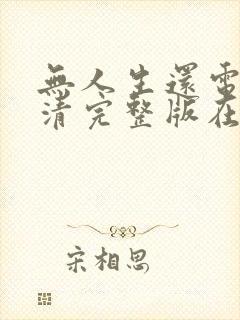 無人生還電
清完整版在
宋相思